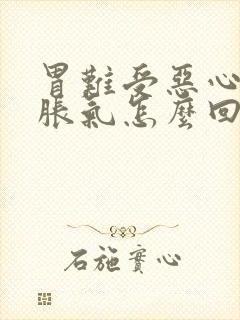 胃難受惡心
脹氣怎麼回
石施實心